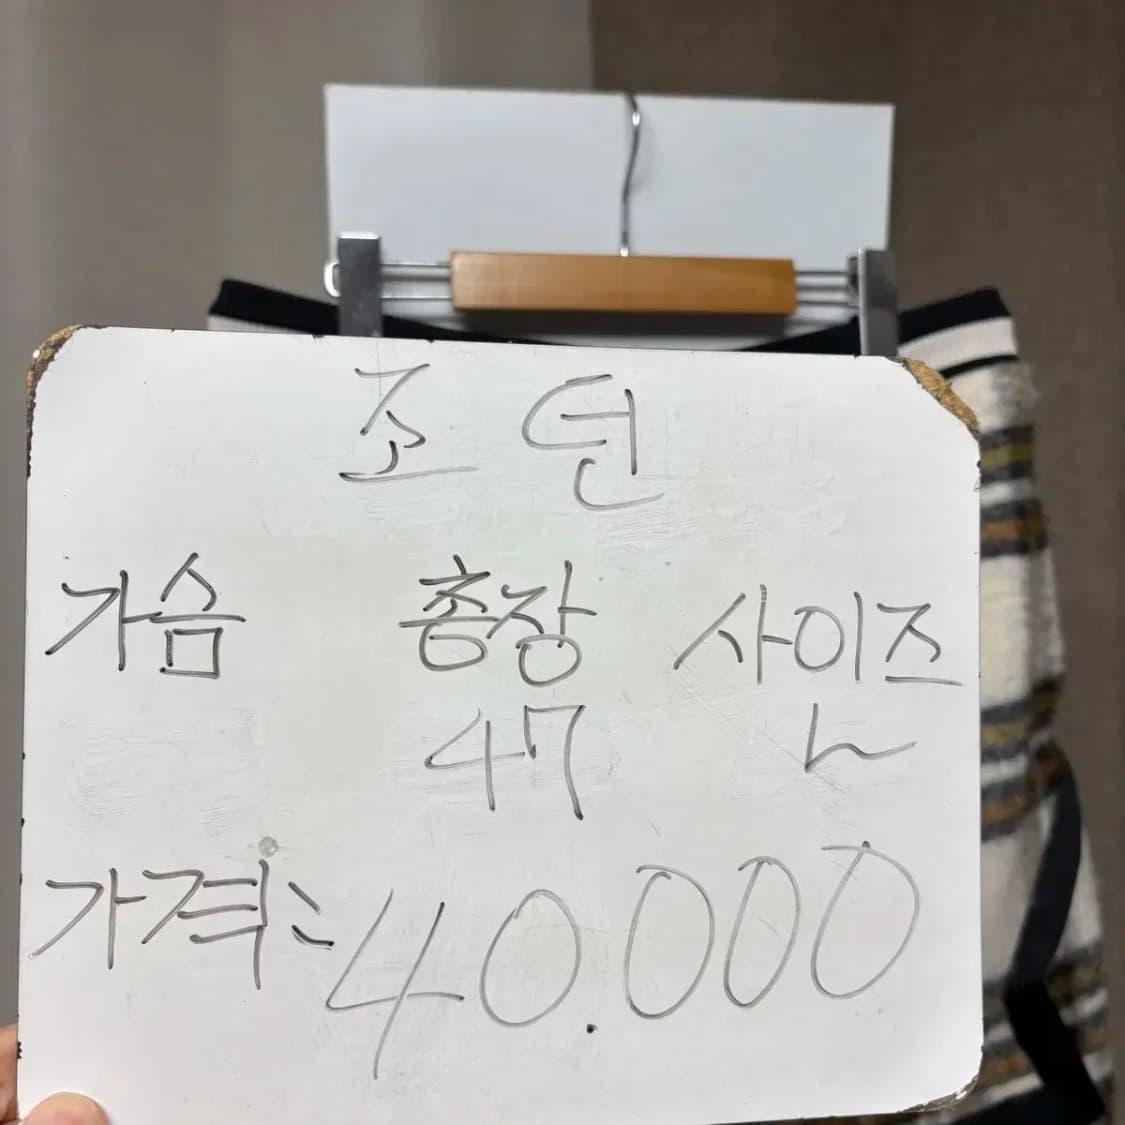 조던
가슴 총장 사이즈
47 L
가격: 40.000